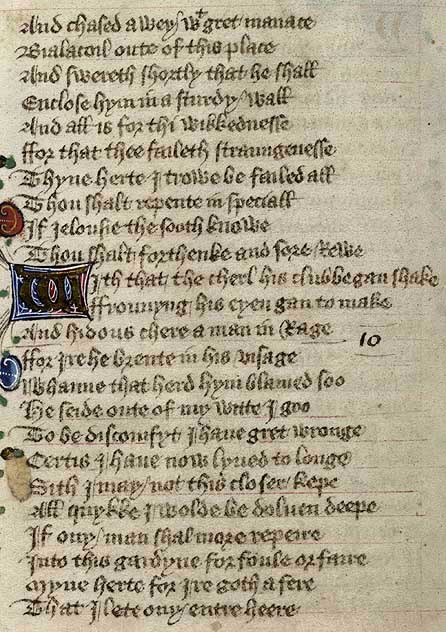 And chased awey wt gret manace
Bialacoil oute of this place
And swereth shortly that he shall
Enclose hym in a sturdy wall
And all is for thi wikkednesse
ffor that thee faileth straungenesse
Thyne herte I trowe be failed all
Thou shalt repente in speciall
If Jelousie the sooth knowe
Thou shalt forthenke and sore Rewe
With that the cherl his clubbe gan shake
ffrounyng his eyen gan to make
And hidous chere a man in Rage
ffor Ire he brente in his visage
10
Whanne that herd hym blamed soo
He seide oute of my witte I goo
To be discomfyt I haue gret wronge
Certis I haue now lyued to longe
Sith I may not this closer kepe
All quykke I wolde be doluen deepe
If ony man shal more repeire
Into this gardyne for foule or faire
Myne herte for Ire goth a fere
That I lete ony entre heere